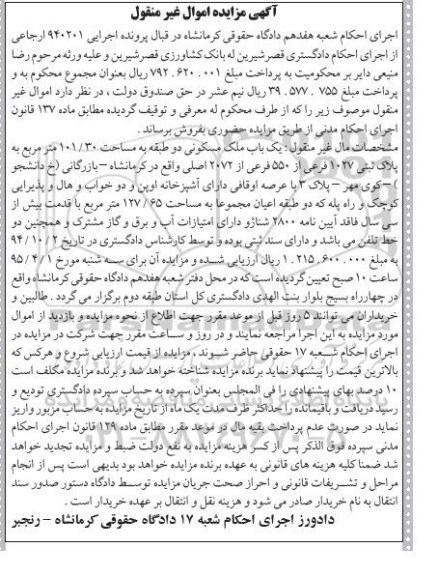 آگهی مزایده اموال غیر منقول
اجرای احکام شعبه هفدهم دادگاه حقوقی کرمانشاه در قبال پرونده اجرایی ۹۴۰۲۰۱ ارجاعی
از اجرای احکام دادگستری قصرشیرین له بانک کشاورزی قصرشیرین و علیه ورثه مرحوم رضا
منیعی دایر بر محکومیت به پرداخت مبلغ ۷۹۲.۶۲۰.۰۰۱ ریال بعنوان مجموع محکوم به و
پرداخت مبلغ ۳۹.۵۷۷.۷۵۵ ریال نیم عشر در حق صندوق دولت ، در نظر دارد اموال غیر
منقول موصوف زیر را که از طرف محکوم له معرفی و توقیف گردیده مطابق ماده ۱۳۷ قانون
اجرای احکام مدنی از طریق مزایده حضوری بفروش برساند .
مشخصات مال غیر منقول : یک باب ملک مسکونی دو طبقه به مساحت ۱۰۱/۳۰ متر مربع به
پلاک ثبتی ۱۰۲۷ فرعی از ۵۵۰ فرعی از ۲۰۷۲ اصلی واقع در کرمانشاه – بازرگانی (خ دانشجو
) – کوی مهر – پلاک ۳ با عرصه اوقافی دارای آشپزخانه اوپن و دو خواب و هال و پذیرایی
کوچک و راه پله که دو طبقه اعیان مجموعا به مساحت ۱۲۷/۶۵ متر مربع با قدمت بیش از
سی سال فاقد آیین نامه ۲۸۰۰ شناژو دارای امتیازات آب و برق و گاز مشترک و همچنین دو
خط تلفن می باشد و دارای سند ثبتی بوده و توسط کارشناس دادگستری در تاریخ ۹۴/۱۰/۲
به مبلغ ۱.۲۱۵.۶۰۰.۰۰۰ ریال ارزیابی شده و مزایده آن برای سه شنبه مورخ ۹۵/۴/۱
ساعت ۱۰ صبح تعیین گردیده است که در محل دفتر شعبه هفدهم دادگاه حقوقی کرمانشاه واقع
در چهارراه بسیج بلوار بنت الهدی دادگستری کل استان طبقه دوم برگزار می گردد . طالبین و
خریداران می توانند ۵ روز قبل از موعد مقرر جهت اطلاع از نحوه مزایده و بازدید از اموال
مورد مزایده به این اجرا مراجعه نمایند و در روز و ساعت مقرر جهت شرکت در مزایده در
اجرای احکام شعبه ۱۷ حقوقی حاضر شوند ، مزایده از قیمت ارزیابی شروع و هرکس که
بالاترین قیمت را پیشنهاد نماید برنده مزایده شناخته خواهد شد و برنده مزایده مکلف است
۱۰ درصد بهای پیشنهادی را فی المجلس بعنوان سپرده به حساب سپرده دادگستری تودیع و
رسید دریافت و باقیمانده را حداکثر ظرف مدت یک ماه از تاریخ مزایده به حساب مزبور واریز
نماید در صورت عدم پرداخت بقیه مال در موعد مقرر مطابق ماده ۱۲۹ قانون اجرای احکام
مدنی سپرده فوق الذکر پس از کسر هزینه مزایده به نفع دولت ضبط و مزایده تجدید خواهد
شد ضمنا کلیه هزینه های قانونی به عهده برنده مزایده خواهد بود بدیهی است پس از انجام
مراحل و تشریفات قانونی و احراز صحت جریان مزایده توسط دادگاه دستور صدور سند
انتقال به نام خریدار صادر می شود و هزینه نقل و انتقال بر عهده خریدار است .
دادورز اجرای احکام شعبه ۱۷ دادگاه حقوقی کرمانشاه – رنجبر